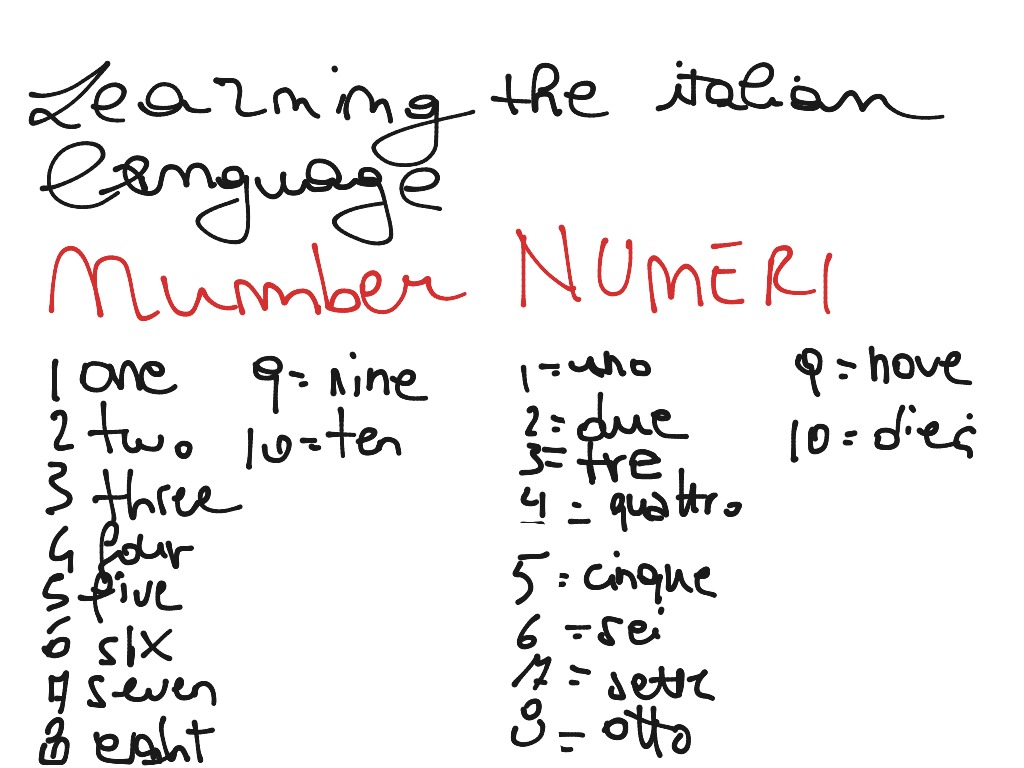 Learning the italian
language
Number NUMERI
1 one 9 = nine
2 two 10 = ten
3 three
4 four
5 five
6 six
7 seven
8 eight
1 = uno 9 = nove
2 = due 10 = dieci
3 = tre
4 = quattro
5 = cinque
6 = sei
7 = sette
8 = otto